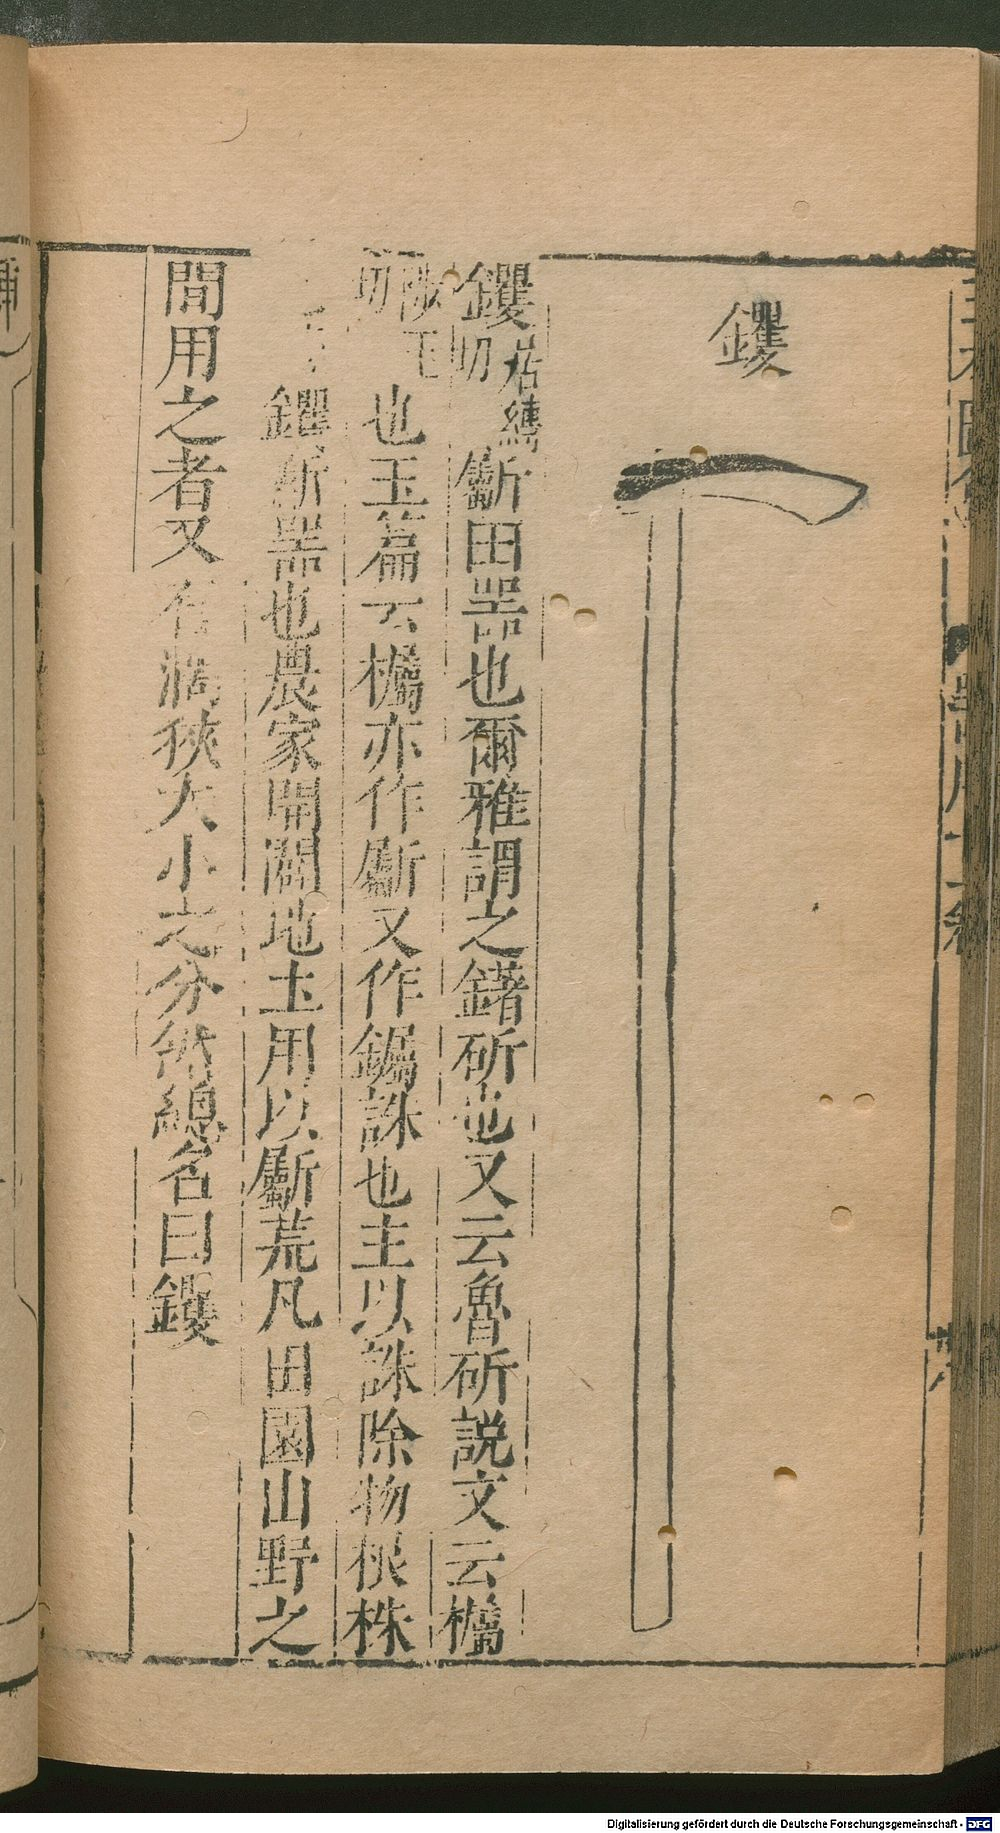 鑺
鑺居縛切斸田器也爾雅謂之鐯斫也又云魯斫説文云欘
玉切也玉篇云欘亦作斸又作鋦誅也主以誅除物根株
鑺斫器也農家開闢地土用以斸荒凡田園山野之
間用之者又有濶狹大小之分然總名曰鑺
Digitalisierung gefördert durch die Deutsche Forschungsgemeinschaft - DFG